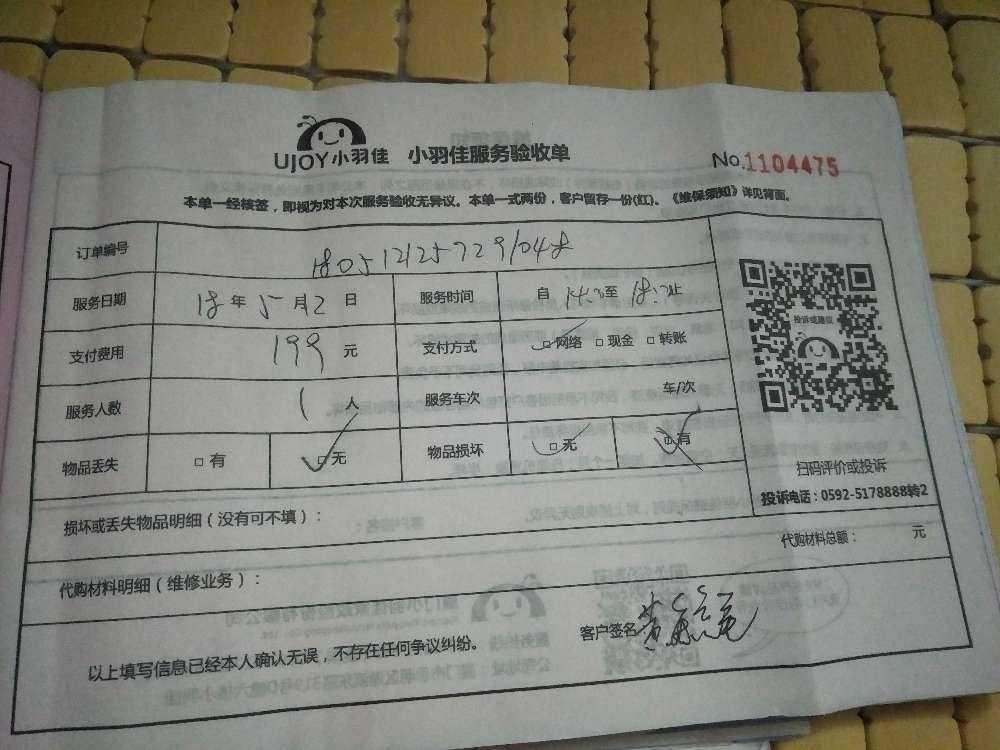 UJOY小羽佳 小羽佳服务验收单
No.1104475
本单一经核签，即视为对本次服务验收无异议。本单一式两份，客户留存一份(红)。《维保须知》详见背面。
订单编号
服务日期 18 年 5 月 2 日 服务时间 自 至 止
投诉或建议
支付费用 199 元 支付方式 □网络 □现金 □转账
服务人数 1 人 服务车次 车/次
物品丢失 □ 有 □无 物品损坏 □ 无 □有
扫码评价或投诉
投诉电话：0592-5178888转2
损坏或丢失物品明细（没有可不填）：
代购材料总额： 元
代购材料明细（维修业务）：
客户签名
以上填写信息已经本人确认无误，不存在任何争议纠纷。